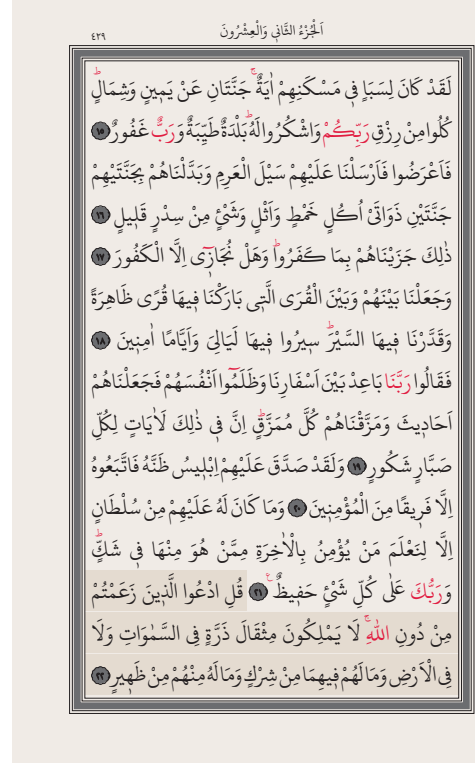 اَلْجُزْءُ الثَّانٖي وَالْعِشْرُونَ
٤٢٩
لَقَدْ كَانَ لِسَبَاٍ فٖي مَسْكَنِهِمْ اٰيَةٌۚ جَنَّتَانِ عَنْ يَمٖينٍ وَشِمَالٍؕ
كُلُوا مِنْ رِزْقِ رَبِّكُمْ وَاشْكُرُوا لَهُؕ بَلْدَةٌ طَيِّبَةٌ وَرَبٌّ غَفُورٌ ﴿١٥﴾
فَاَعْرَضُوا فَاَرْسَلْنَا عَلَيْهِمْ سَيْلَ الْعَرِمِ وَبَدَّلْنَاهُمْ بِجَنَّتَيْهِمْ
جَنَّتَيْنِ ذَوَاتَيْ اُكُلٍ خَمْطٍ وَاَثْلٍ وَشَيْءٍ مِنْ سِدْرٍ قَلٖيلٍ ﴿١٦﴾
ذٰلِكَ جَزَيْنَاهُمْ بِمَا كَفَرُواؕ وَهَلْ نُجَازٖٓي اِلَّا الْكَفُورَ ﴿١٧﴾
وَجَعَلْنَا بَيْنَهُمْ وَبَيْنَ الْقُرَى الَّتٖي بَارَكْنَا فٖيهَا قُرًى ظَاهِرَةً
وَقَدَّرْنَا فٖيهَا السَّيْرَؕ سٖيرُوا فٖيهَا لَيَالِيَ وَاَيَّامًا اٰمِنٖينَ ﴿١٨﴾
فَقَالُوا رَبَّنَا بَاعِدْ بَيْنَ اَسْفَارِنَا وَظَلَمُٓوا اَنْفُسَهُمْ فَجَعَلْنَاهُمْ
اَحَادٖيثَ وَمَزَّقْنَاهُمْ كُلَّ مُمَزَّقٍؕ اِنَّ فٖي ذٰلِكَ لَاٰيَاتٍ لِكُلِّ
صَبَّارٍ شَكُورٍ ﴿١٩﴾ وَلَقَدْ صَدَّقَ عَلَيْهِمْ اِبْلٖيسُ ظَنَّهُ فَاتَّبَعُوهُ
اِلَّا فَرٖيقًا مِنَ الْمُؤْمِنٖينَ ﴿٢٠﴾ وَمَا كَانَ لَهُ عَلَيْهِمْ مِنْ سُلْطَانٍ
اِلَّا لِنَعْلَمَ مَنْ يُؤْمِنُ بِالْاٰخِرَةِ مِمَّنْ هُوَ مِنْهَا فٖي شَكٍّؕ
وَرَبُّكَ عَلٰى كُلِّ شَيْءٍ حَفٖيظٌ۟ ﴿٢١﴾ قُلِ ادْعُوا الَّذٖينَ زَعَمْتُمْ
مِنْ دُونِ اللّٰهِۚ لَا يَمْلِكُونَ مِثْقَالَ ذَرَّةٍ فِي السَّمٰوَاتِ وَلَا
فِي الْاَرْضِ وَمَا لَهُمْ فٖيهِمَا مِنْ شِرْكٍ وَمَا لَهُ مِنْهُمْ مِنْ ظَهٖيرٍ ﴿٢٢﴾